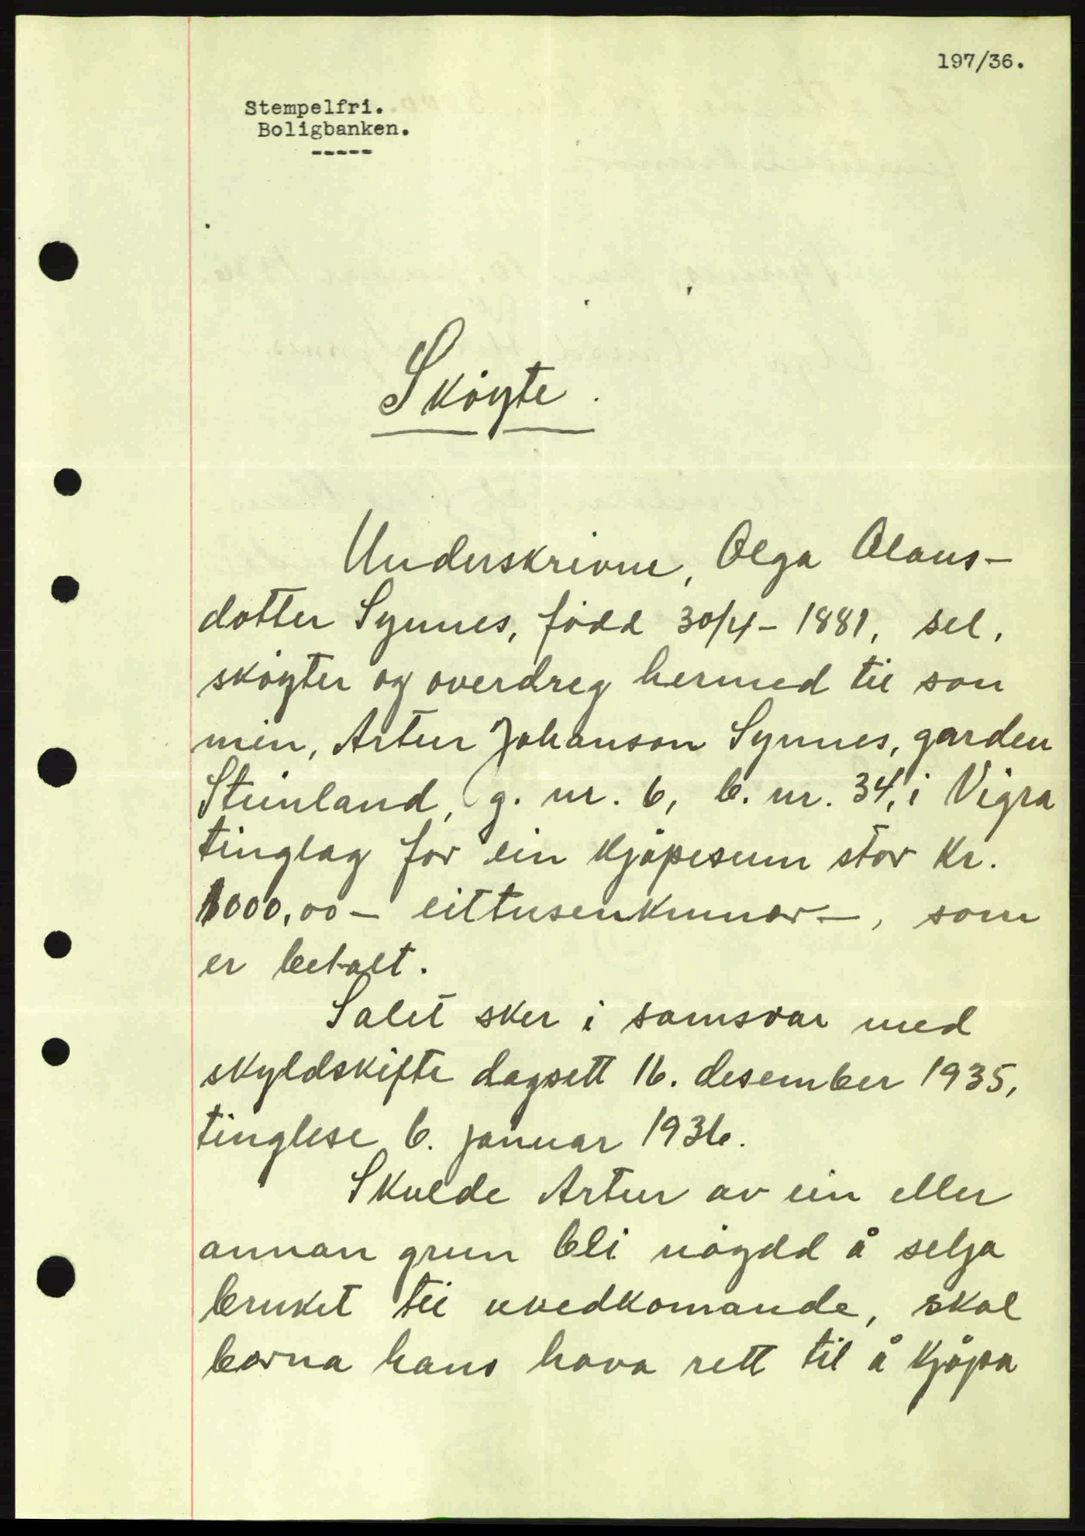 197/36.
Stempelfri.
Boligbanken.
-----
Skøyte.
Underskrivne, Olga Olaus-
dotter Synnes, fødd 30/4- 1881, sel,
skøyter og overdreg hermed til son
min, Artur Johanson Synnes, garden
Steinland, g. nr. 6, b. nr. 34, i Vigra
tinglag for ein kjøpesum stor kr.
1000,00 - eittusenkrunor -, som
er betalt.
Salet sker i samsvar med
skyldskifte dagsett 16. desember 1935,
tinglese 6. januar 1936.
Skulde Artur av ein eller
annan grun bli nøgdd å selja
bruket til uvedkomande, skal
borna hans hava rett til å kjøpa